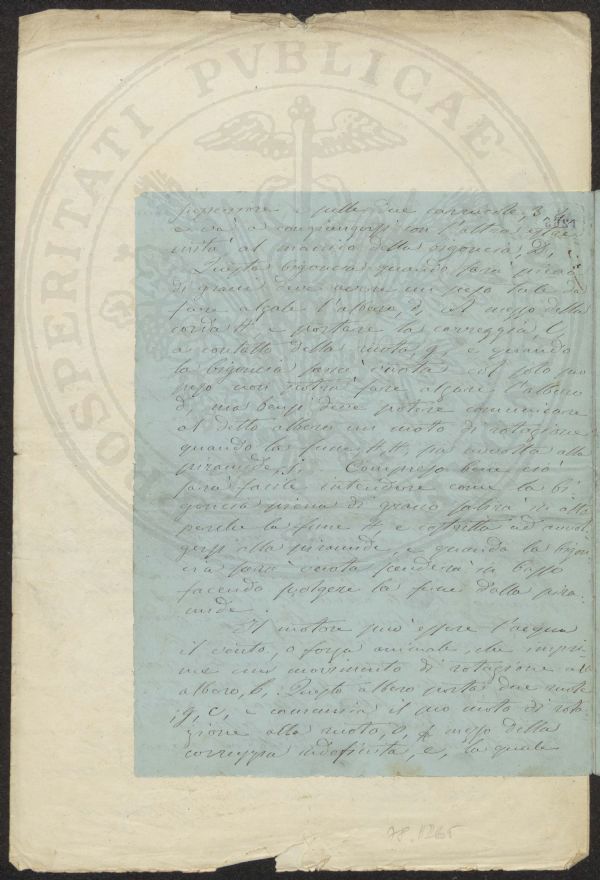 PROSPERITATI PVBLICAE
e va a congiungersi con l'altra estre
mità al manico della bigoncia, D,
Questa bigoncia quando sarà piena
di grano deve avere un peso tale da
fare alzare l'albero, d, col mezzo della
corda H e portare la correggia, C,
a contatto della ruota, g, e quando
la bigoncia sarà vuota col solo suo
peso non potrà fare alzare l'albero
d, ma bensì deve potere comunicare
al detto albero un moto di rotazione
quando la fune H, sia avvolta alla
piramide, i, Compreso bene ciò
sarà facile intendere come la bi
goncia piena di grano salirà in alto
perche la fune H, e costretta ad avvol
gersi alla piramide, e quando la bigon
cia sarà vuota scenderà in basso
facendo svolgere la fune dalla pira
mide.
Il motore può essere l'acqua
il vento, o forza animale, che impri
me un movimento di rotazione all
albero, b, Questo albero porta due ruote
g, c, e comunica il suo moto di rota
zione alla ruota, a mezzo della
correggia indefinita, e, la quale